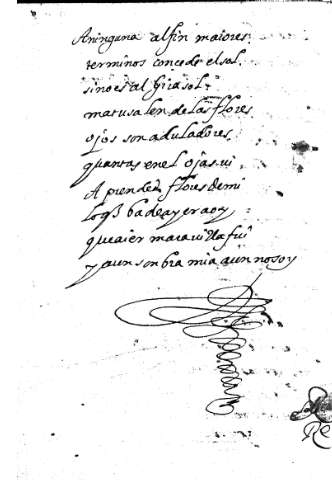 Aninguna al fin maiores
terminos concede el sol.
sino es al Girasol
matusalen de las flores
ojos son aduladores
quantas en el ojas vi
Aprended flores de mi
lo q̃ ba de ayer a oy
que aier marauilla fui
y aun sonbra mia aun no soy